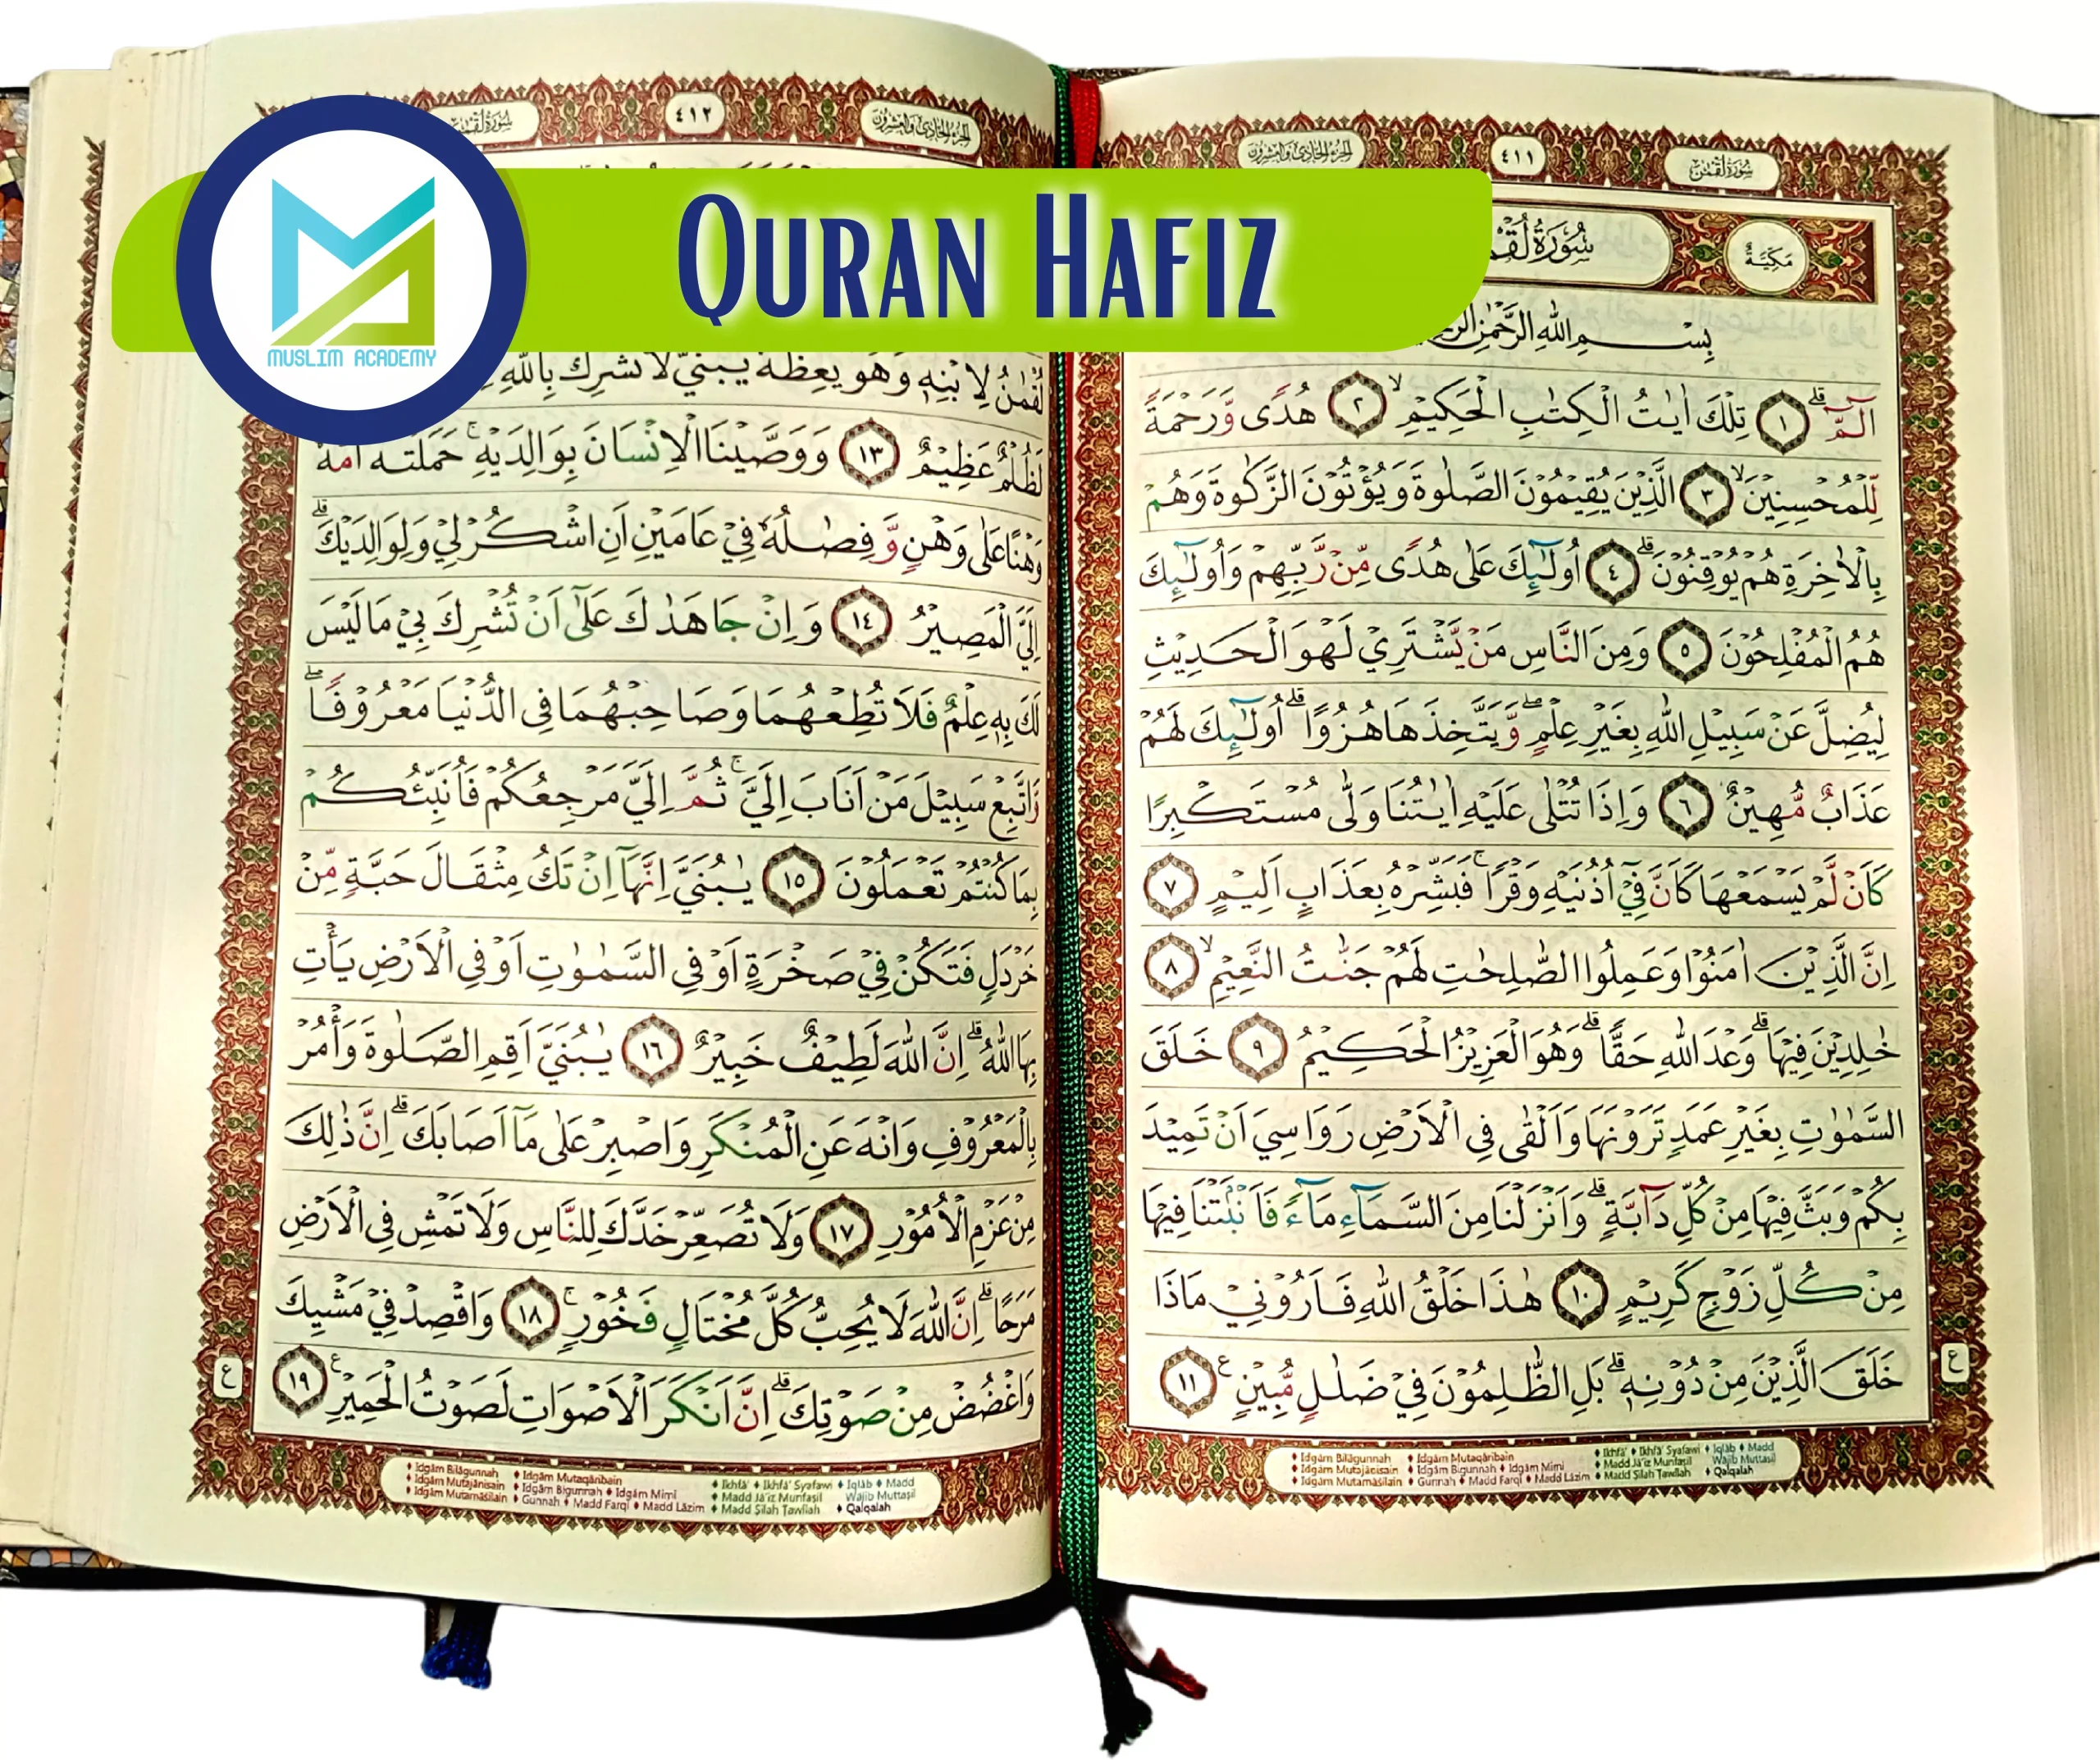 QURAN HAFIZ
MUSLIM ACADEMY
سُوْرَةُ لُقْمٰن
٤١١
الجزء الحادي والعشرون
مَكِّيَّةٌ
سُوْرَةُ
بِسْمِ اللّٰهِ الرَّحْمٰنِ
الۤمّۤ ۗ ١ تِلْكَ اٰيٰتُ الْكِتٰبِ الْحَكِيْمِۙ ٢ هُدًى وَّرَحْمَةً
لِّلْمُحْسِنِيْنَۙ ٣ الَّذِيْنَ يُقِيْمُوْنَ الصَّلٰوةَ وَيُؤْتُوْنَ الزَّكٰوةَ وَهُمْ
بِالْاٰخِرَةِ هُمْ يُوْقِنُوْنَۗ ٤ اُولٰۤىِٕكَ عَلٰى هُدًى مِّنْ رَّبِّهِمْ وَاُولٰۤىِٕكَ
هُمُ الْمُفْلِحُوْنَ ٥ وَمِنَ النَّاسِ مَنْ يَّشْتَرِيْ لَهْوَ الْحَدِيْثِ
لِيُضِلَّ عَنْ سَبِيْلِ اللّٰهِ بِغَيْرِ عِلْمٍۖ وَّيَتَّخِذَهَا هُزُوًاۗ اُولٰۤىِٕكَ لَهُمْ
عَذَابٌ مُّهِيْنٌ ٦ وَاِذَا تُتْلٰى عَلَيْهِ اٰيٰتُنَا وَلّٰى مُسْتَكْبِرًا
كَاَنْ لَّمْ يَسْمَعْهَا كَاَنَّ فِيْٓ اُذُنَيْهِ وَقْرًاۚ فَبَشِّرْهُ بِعَذَابٍ اَلِيْمٍ ٧
اِنَّ الَّذِيْنَ اٰمَنُوْا وَعَمِلُوا الصّٰلِحٰتِ لَهُمْ جَنّٰتُ النَّعِيْمِۙ ٨
خٰلِدِيْنَ فِيْهَاۗ وَعْدَ اللّٰهِ حَقًّاۗ وَهُوَ الْعَزِيْزُ الْحَكِيْمُ ٩ خَلَقَ
السَّمٰوٰتِ بِغَيْرِ عَمَدٍ تَرَوْنَهَا وَاَلْقٰى فِى الْاَرْضِ رَوَاسِيَ اَنْ تَمِيْدَ
بِكُمْ وَبَثَّ فِيْهَا مِنْ كُلِّ دَاۤبَّةٍۗ وَاَنْزَلْنَا مِنَ السَّمَاۤءِ مَاۤءً فَاَنْۢبَتْنَا فِيْهَا
مِنْ كُلِّ زَوْجٍ كَرِيْمٍ ١٠ هٰذَا خَلْقُ اللّٰهِ فَاَرُوْنِيْ مَاذَا
خَلَقَ الَّذِيْنَ مِنْ دُوْنِهٖۗ بَلِ الظّٰلِمُوْنَ فِيْ ضَلٰلٍ مُّبِيْنٍ ࣖ ١١
ع
♦ Idgām Bilāgunnah ♦ Idgām Mutaqāribain ♦ Ikhfā' ♦ Ikhfā' Syafawi ♦ Iqlāb ♦ Madd
♦ Idgām Mutajānisain ♦ Idgām Bigunnah ♦ Idgām Mimi ♦ Madd Jā'iz Munfaṣil Wajib Muttaṣil
♦ Idgām Mutamāṡilain ♦ Gunnah ♦ Madd Farqi ♦ Madd Lāzim ♦ Madd Ṣilah Ṭawīlah ♦ Qalqalah
الجزء الحادي والعشرون
٤١٢
سُوْرَةُ لُقْمٰن
لُقْمٰنُ لِابْنِهٖ وَهُوَ يَعِظُهٗ يٰبُنَيَّ لَا تُشْرِكْ بِاللّٰهِ
لَظُلْمٌ عَظِيْمٌ ١٣ وَوَصَّيْنَا الْاِنْسَانَ بِوَالِدَيْهِۚ حَمَلَتْهُ اُمُّهٗ
وَهْنًا عَلٰى وَهْنٍ وَّفِصَالُهٗ فِيْ عَامَيْنِ اَنِ اشْكُرْ لِيْ وَلِوَالِدَيْكَۗ
اِلَيَّ الْمَصِيْرُ ١٤ وَاِنْ جَاهَدٰكَ عَلٰٓى اَنْ تُشْرِكَ بِيْ مَا لَيْسَ
لَكَ بِهٖ عِلْمٌ فَلَا تُطِعْهُمَا وَصَاحِبْهُمَا فِى الدُّنْيَا مَعْرُوْفًاۖ
وَّاتَّبِعْ سَبِيْلَ مَنْ اَنَابَ اِلَيَّۚ ثُمَّ اِلَيَّ مَرْجِعُكُمْ فَاُنَبِّئُكُمْ
بِمَا كُنْتُمْ تَعْمَلُوْنَ ١٥ يٰبُنَيَّ اِنَّهَآ اِنْ تَكُ مِثْقَالَ حَبَّةٍ مِّنْ
خَرْدَلٍ فَتَكُنْ فِيْ صَخْرَةٍ اَوْ فِى السَّمٰوٰتِ اَوْ فِى الْاَرْضِ يَأْتِ
بِهَا اللّٰهُۗ اِنَّ اللّٰهَ لَطِيْفٌ خَبِيْرٌ ١٦ يٰبُنَيَّ اَقِمِ الصَّلٰوةَ وَأْمُرْ
بِالْمَعْرُوْفِ وَانْهَ عَنِ الْمُنْكَرِ وَاصْبِرْ عَلٰى مَآ اَصَابَكَۗ اِنَّ ذٰلِكَ
مِنْ عَزْمِ الْاُمُوْرِ ١٧ وَلَا تُصَعِّرْ خَدَّكَ لِلنَّاسِ وَلَا تَمْشِ فِى الْاَرْضِ
مَرَحًاۗ اِنَّ اللّٰهَ لَا يُحِبُّ كُلَّ مُخْتَالٍ فَخُوْرٍۚ ١٨ وَاقْصِدْ فِيْ مَشْيِكَ
وَاغْضُضْ مِنْ صَوْتِكَۗ اِنَّ اَنْكَرَ الْاَصْوَاتِ لَصَوْتُ الْحَمِيْرِ ࣖ ١٩
ع
♦ Idgām Bilāgunnah ♦ Idgām Mutaqāribain ♦ Ikhfā' ♦ Ikhfā' Syafawi ♦ Iqlāb ♦ Madd
♦ Idgām Mutajānisain ♦ Idgām Bigunnah ♦ Idgām Mimi ♦ Madd Jā'iz Munfaṣil Wajib Muttaṣil
♦ Idgām Mutamāṡilain ♦ Gunnah ♦ Madd Farqi ♦ Madd Lāzim ♦ Madd Ṣilah Ṭawīlah ♦ Qalqalah